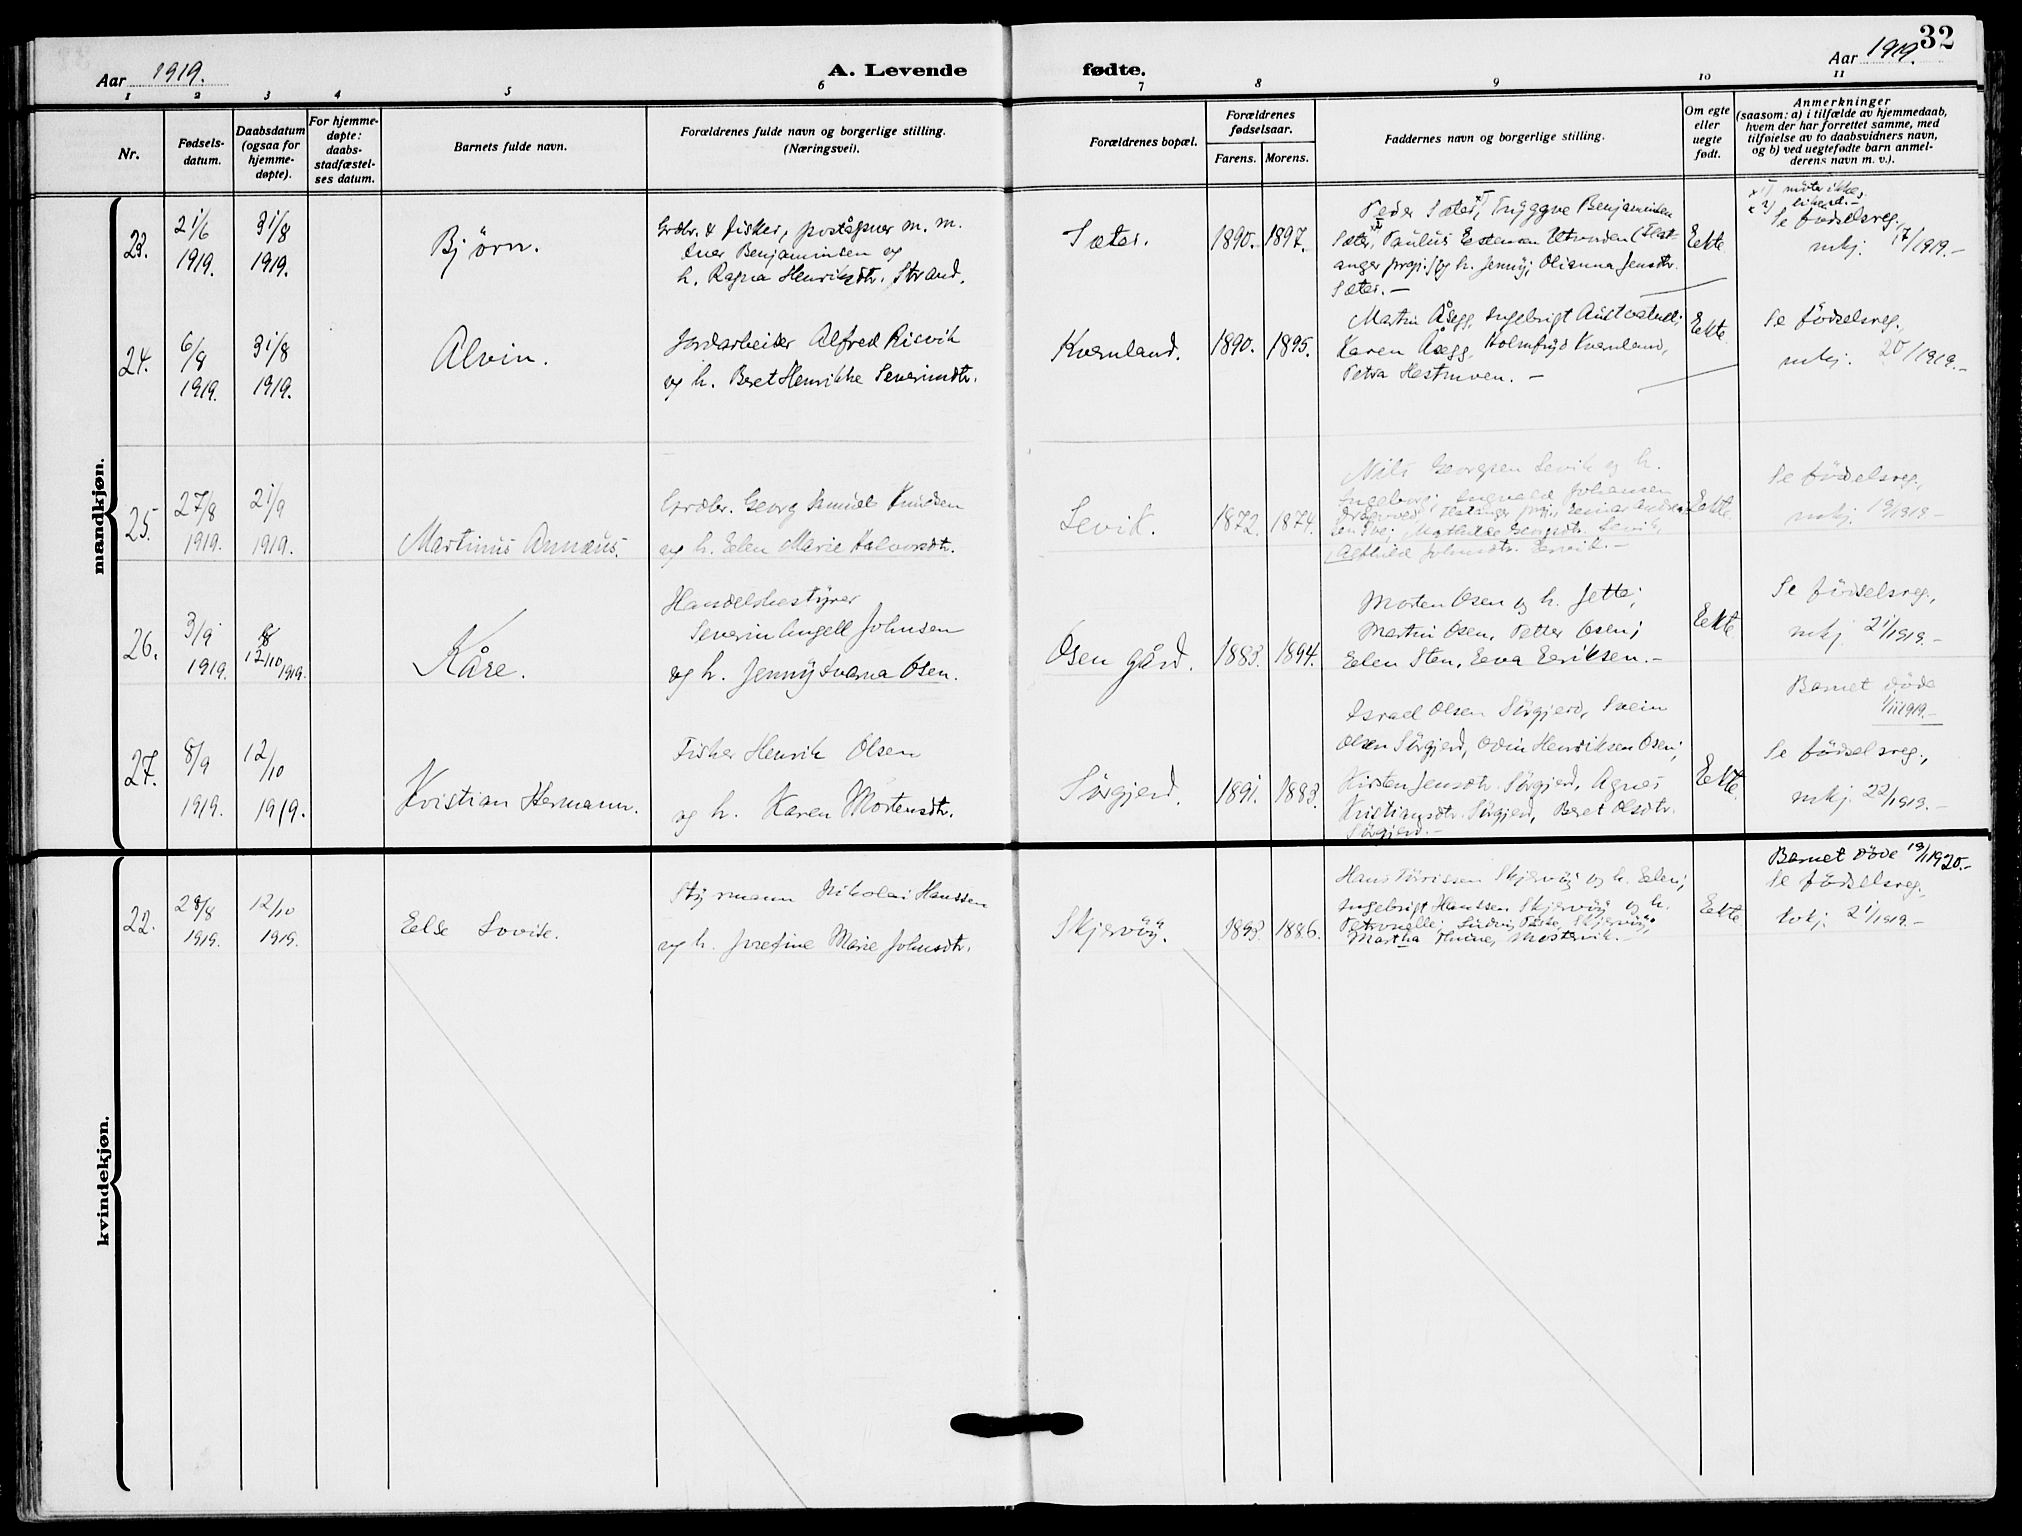 32
Aar 1919.
A. Levende fødte.
Aar 1919.
1 2 3 4 5 6 7 8 9 10 11
Nr.
Fødsels-
datum.
Daabsdatum
(ogsaa for
hjemme-
døpte).
For hjemme-
døpte:
daabs-
stadfæstel-
ses datum.
Barnets fulde navn.
Forældrenes fulde navn og borgerlige stilling.
(Næringsvei).
Forældrenes bopæl.
Forældrenes
fødselsaar.
Farens. Morens.
Faddernes navn og borgerlige stilling.
Om egte
eller
uegte
født.
Anmerkninger
(saasom: a) i tilfælde av hjemmedaab,
hvem der har forrettet samme, med
tilføielse av to daabsvidners navn,
og b) ved uegtefødte barn anmel-
derens navn m. v.).
mandkjøn.
23.
21/6
1919.
31/8
1919.
Bjørn.
Grdbr. & fisker, poståpner m. m.
Benjaminsen og
h. Ragna Henriksdtr. Strand.
Sæter.
1890. 1897.
Peder Sæter, Tryggve Benjaminsen
Sæter, Paulus Estensen Utvorden
h. Jenny; Olianna Jensdtr.
Sæter. —
Ekte
møter ikke,
Se fødselsreg.,
mkj. 17/1919.—
24.
6/8
1919.
31/8
1919.
Alvin.
Jordarbeider Alfred Risvik
og h. Beret Henrikke Severinsdtr.
Kvernland.
1890. 1895.
Martin Åsegg, Ingebrigt
Karen Åsegg, Holmfryd Kvernland,
Petra Hestmoen. —
Ekte
Se fødselsreg.,
mkj. 20/1919.—
25.
27/8
1919.
21/9
1919.
Martinus Annæus.
Grdbr. Georg Samuel Knudsen
og h. Elen Marie Halvorsdtr.
Levik.
1872. 1874.
Nils Georgsen Levik og h.
Ingeborg; Ingvald Johansen
Mathilde Georgsdtr. Levik,
Johnsdtr. —
Ekte
Se fødselsreg.,
mkj. 19/1919—
26.
3/9
1919.
12/10 1919.
Kåre.
Handelsbestyrer
Severin Angell Johnsen
og h. Jenny Ivarna Osen.
Osen gård.
1883. 1894.
Morten Osen og h. Jette;
Martin Osen, Petter Osen;
Elen Sten, Eva Eriksen.—
Ekte
Se fødselsreg.,
mkj. 21/1919.—
27.
8/9
1919.
12/10
1919.
Kristian Hermann.
Fisker Henrik Olsen
og h. Karen Mortensdtr.
Sörgjerd.
1891. 1883.
Israel Olsen Sörgjerd, Svein
Olsen Sörgjerd, Odin Henriksen Osen;
Kirsten Jensdtr. Sörgjerd, Agnes
Kristiansdtr. Sörgjerd, Beret Olsdtr.
Sörgjerd.—
Ekte.
Barnet døde
1/11 1919.—
Se fødselsreg.,
mkj. 22/1919.—
kvindekjøn.
22.
28/8
1919.
12/10
1919.
Else Lovise.
Styrmann Nikolai Hanssen
og h. Josefine Marie Johnsdtr.
Skjervöy.
1893. 1886.
Hans Skjervöy og h. Elen;
Ingebrigt Hanssen Skjervöy og h.
Petronelle, Ludvig Skjervöy,
Martha
Ekte
Barnet døde 19/1 1920.—
Se fødselsreg.,
kvkj. 21/1919.—